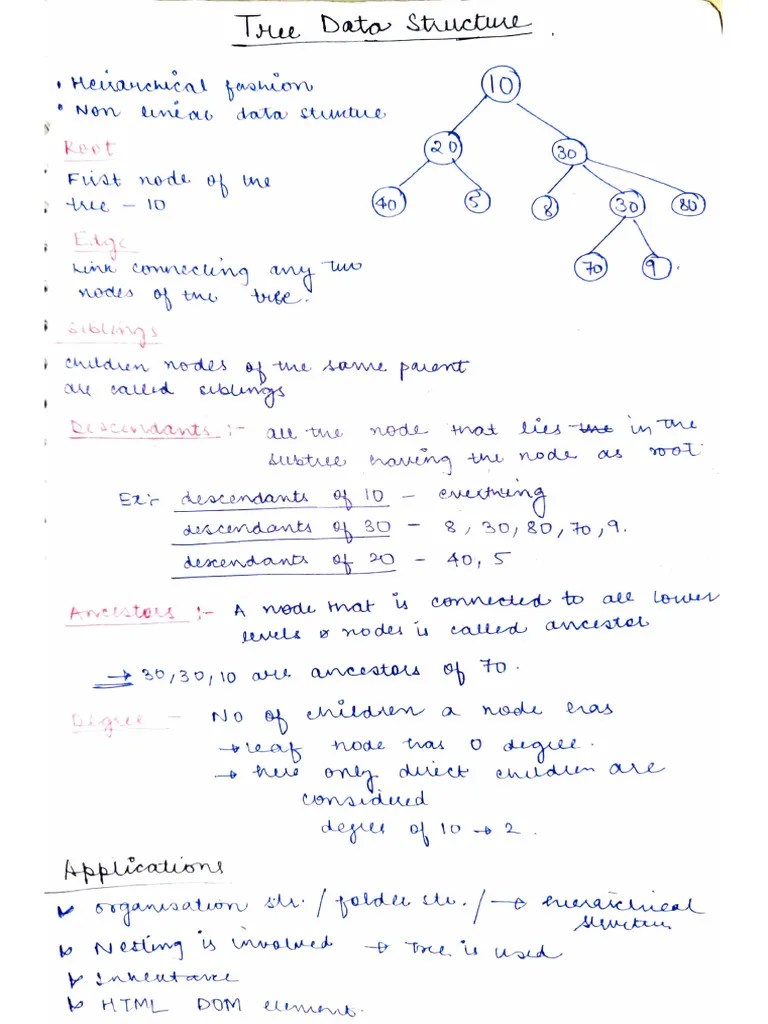 Tree Data Structure.
• Heirarchical fashion
• Non linear data structure
Root
First node of the
tree - 10
Edge
Link connecting any two
nodes of the tree.
Siblings
children nodes of the same parent
are called siblings
10
20 30
40 5 8 30 80
70 9
Descendants :- all the node that lies the in the
subtree having the node as root.
Ex:- descendants of 10 - everthing
descendants of 30 - 8, 30, 80, 70, 9.
descendants of 20 - 40, 5
Ancestors :- A node that is connected to all lower
levels nodes is called ancestor
→ 30, 30, 10 are ancestors of 70.
Degree - No of children a node has
→ leaf node has 0 degree.
→ here only direct children are
considered
degree of 10 → 2.
Applications
organisation str. / folder str. / → hierarchical
structure
Nesting is involved → Tree is used
Inheritance
HTML DOM element.